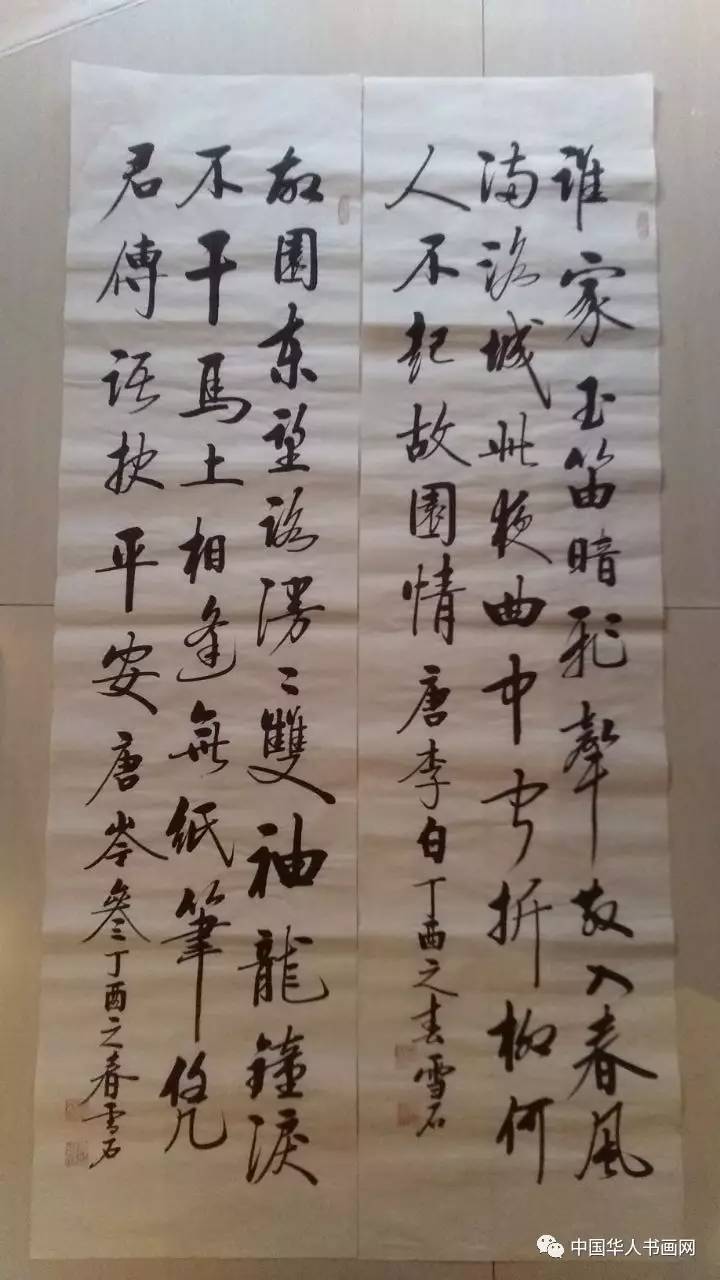 誰家玉笛暗飛聲散入春風
滿洛城此夜曲中聞折柳何
人不起故園情唐李白丁酉之春雪石
故園東望路漫〻雙袖龍鐘淚
不干馬上相逢無紙筆凭
君傳語报平安唐岑參丁酉之春雪石
中国华人书画网